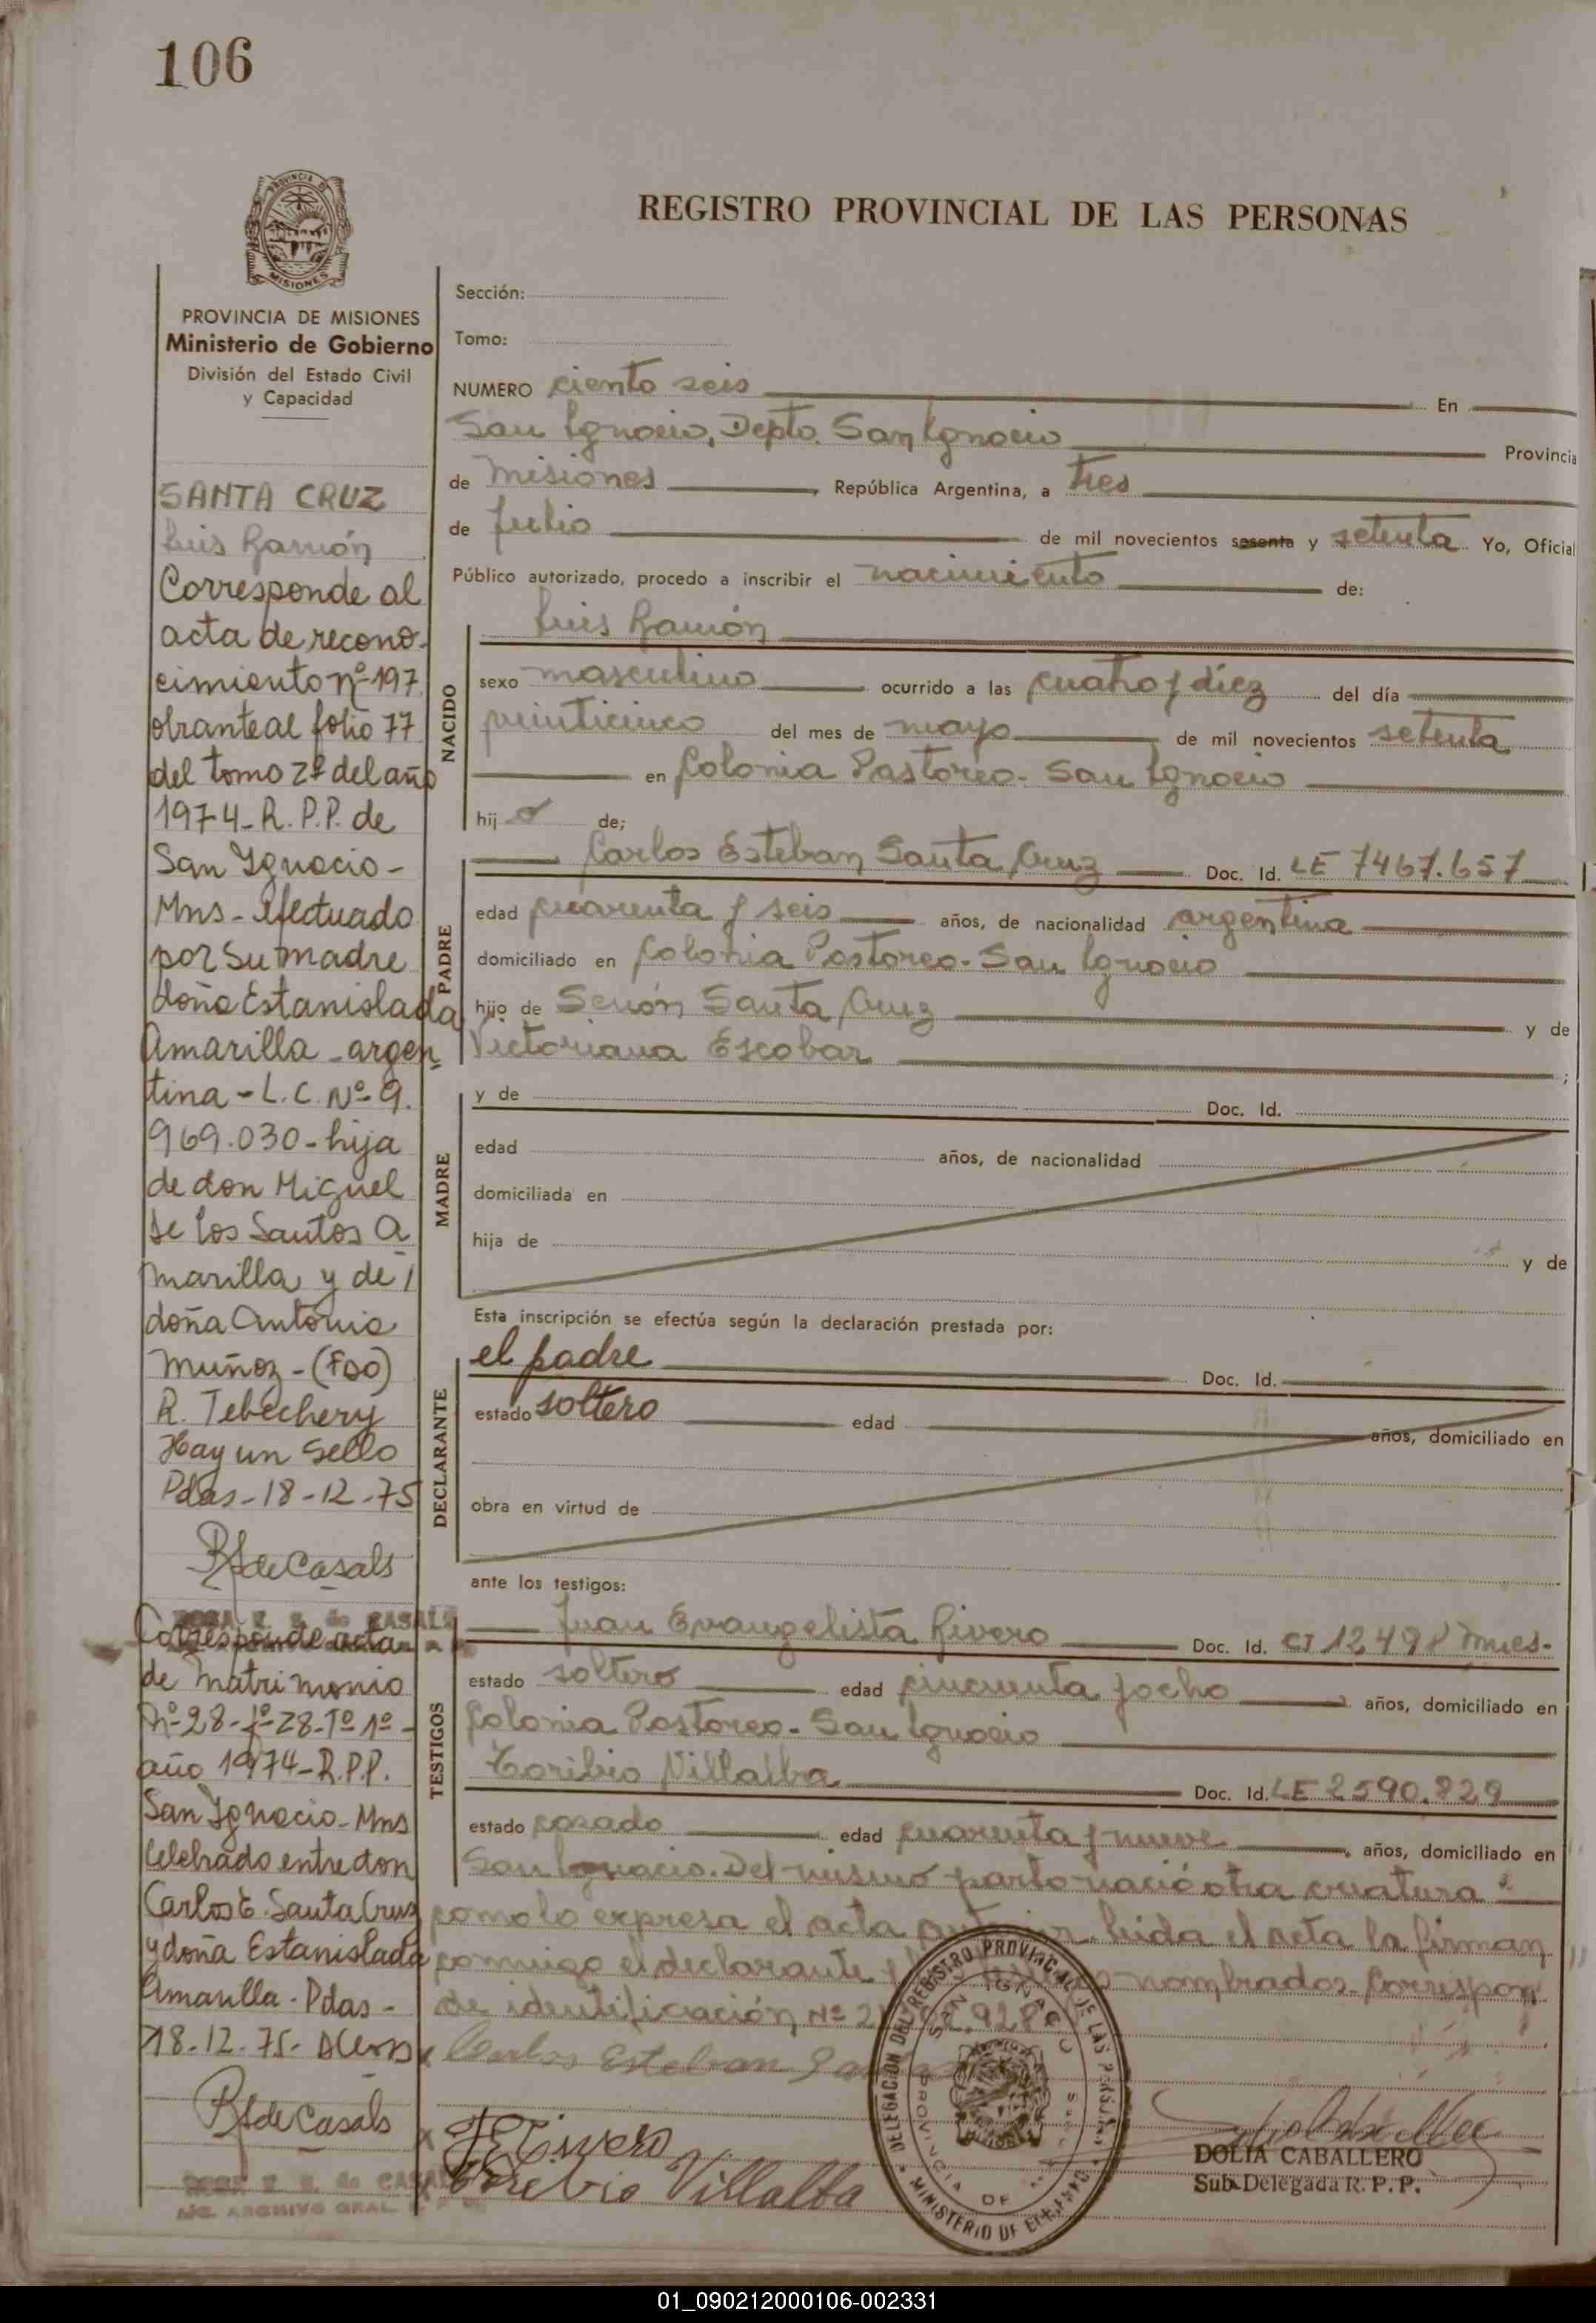 106
PROVINCIA DE
MISIONES
PROVINCIA DE MISIONES
Ministerio de Gobierno
División del Estado Civil
y Capacidad
SANTA CRUZ
Luis Ramón
Corresponde al
acta de recono-
cimiento nº 197
obrante al folio 77
del tomo 2º del año
1974- R. P.P. de
San Ignacio -
Mns - efectuado
por su madre
doña Estanislada
Amarilla - argen
tina - L. C. Nº 9.
969.030 - hija
de don Miguel
de los Santos A
marilla y de
doña Antonia
Muñoz - (FDO)
R. Tebechery
Hay un sello
Pdas - 18 - 12 - 75
R de Casals
de CASALS
Corresponde acta
de matrimonio
Nº 28 - fº 28 - Tº 1º -
año 1974 - R.P.P.
San Ignacio - Mns
celebrado entre don
Carlos E. Santa Cruz
y doña Estanislada
Amarilla - Pdas -
18 - 12 - 75 -
R de Casals
de CASALS
ARCHIVO GRAL.
REGISTRO PROVINCIAL DE LAS PERSONAS
Sección:
Tomo:
NUMERO ciento seis En
San Ignacio, Depto. San Ignacio Provincia
de Misiones, República Argentina, a tres
de Julio de mil novecientos sesenta y setenta Yo, Oficial
Público autorizado, procedo a inscribir el nacimiento de:
NACIDO
Luis Ramón
sexo masculino ocurrido a las cuatro y diez del día
veinticinco del mes de mayo de mil novecientos setenta
en Colonia Pastoreo - San Ignacio
hijo de;
PADRE
Carlos Esteban Santa Cruz Doc. Id. LE 7467.657
edad cuarenta y seis años, de nacionalidad argentina
domiciliado en Colonia Pastoreo - San Ignacio
hijo de Senón Santa Cruz y de
Victoriana Escobar ;
MADRE
y de Doc. Id.
edad años, de nacionalidad
domiciliada en
hija de y de
Esta inscripción se efectúa según la declaración prestada por:
DECLARANTE
el padre Doc. Id.
estado soltero edad años, domiciliado en
obra en virtud de
ante los testigos:
TESTIGOS
Juan Evangelista Rivero Doc. Id. CI 12498 Mnes-
estado soltero edad cincuenta y ocho años, domiciliado en
Colonia Pastoreo - San Ignacio
Toribio Villalba Doc. Id. LE 2590.829
estado casado edad cuarenta y nueve, años, domiciliado en
San Ignacio. Del mismo parto nació otra criatura
como lo expresa el acta anterior. Leida el acta la firman
conmigo el declarante y los testigos nombrados. Correspon
de identificación Nº
Carlos Esteban
J E Rivero
Toribio Villalba
DELEGACION DEL REGISTRO PROVINCIAL DE LAS PERSONAS
MINISTERIO DE
SAN IGNACIO
PROVINCIA DE
DOLIA CABALLERO
Sub-Delegada R. P. P.
01_090212000106-002331